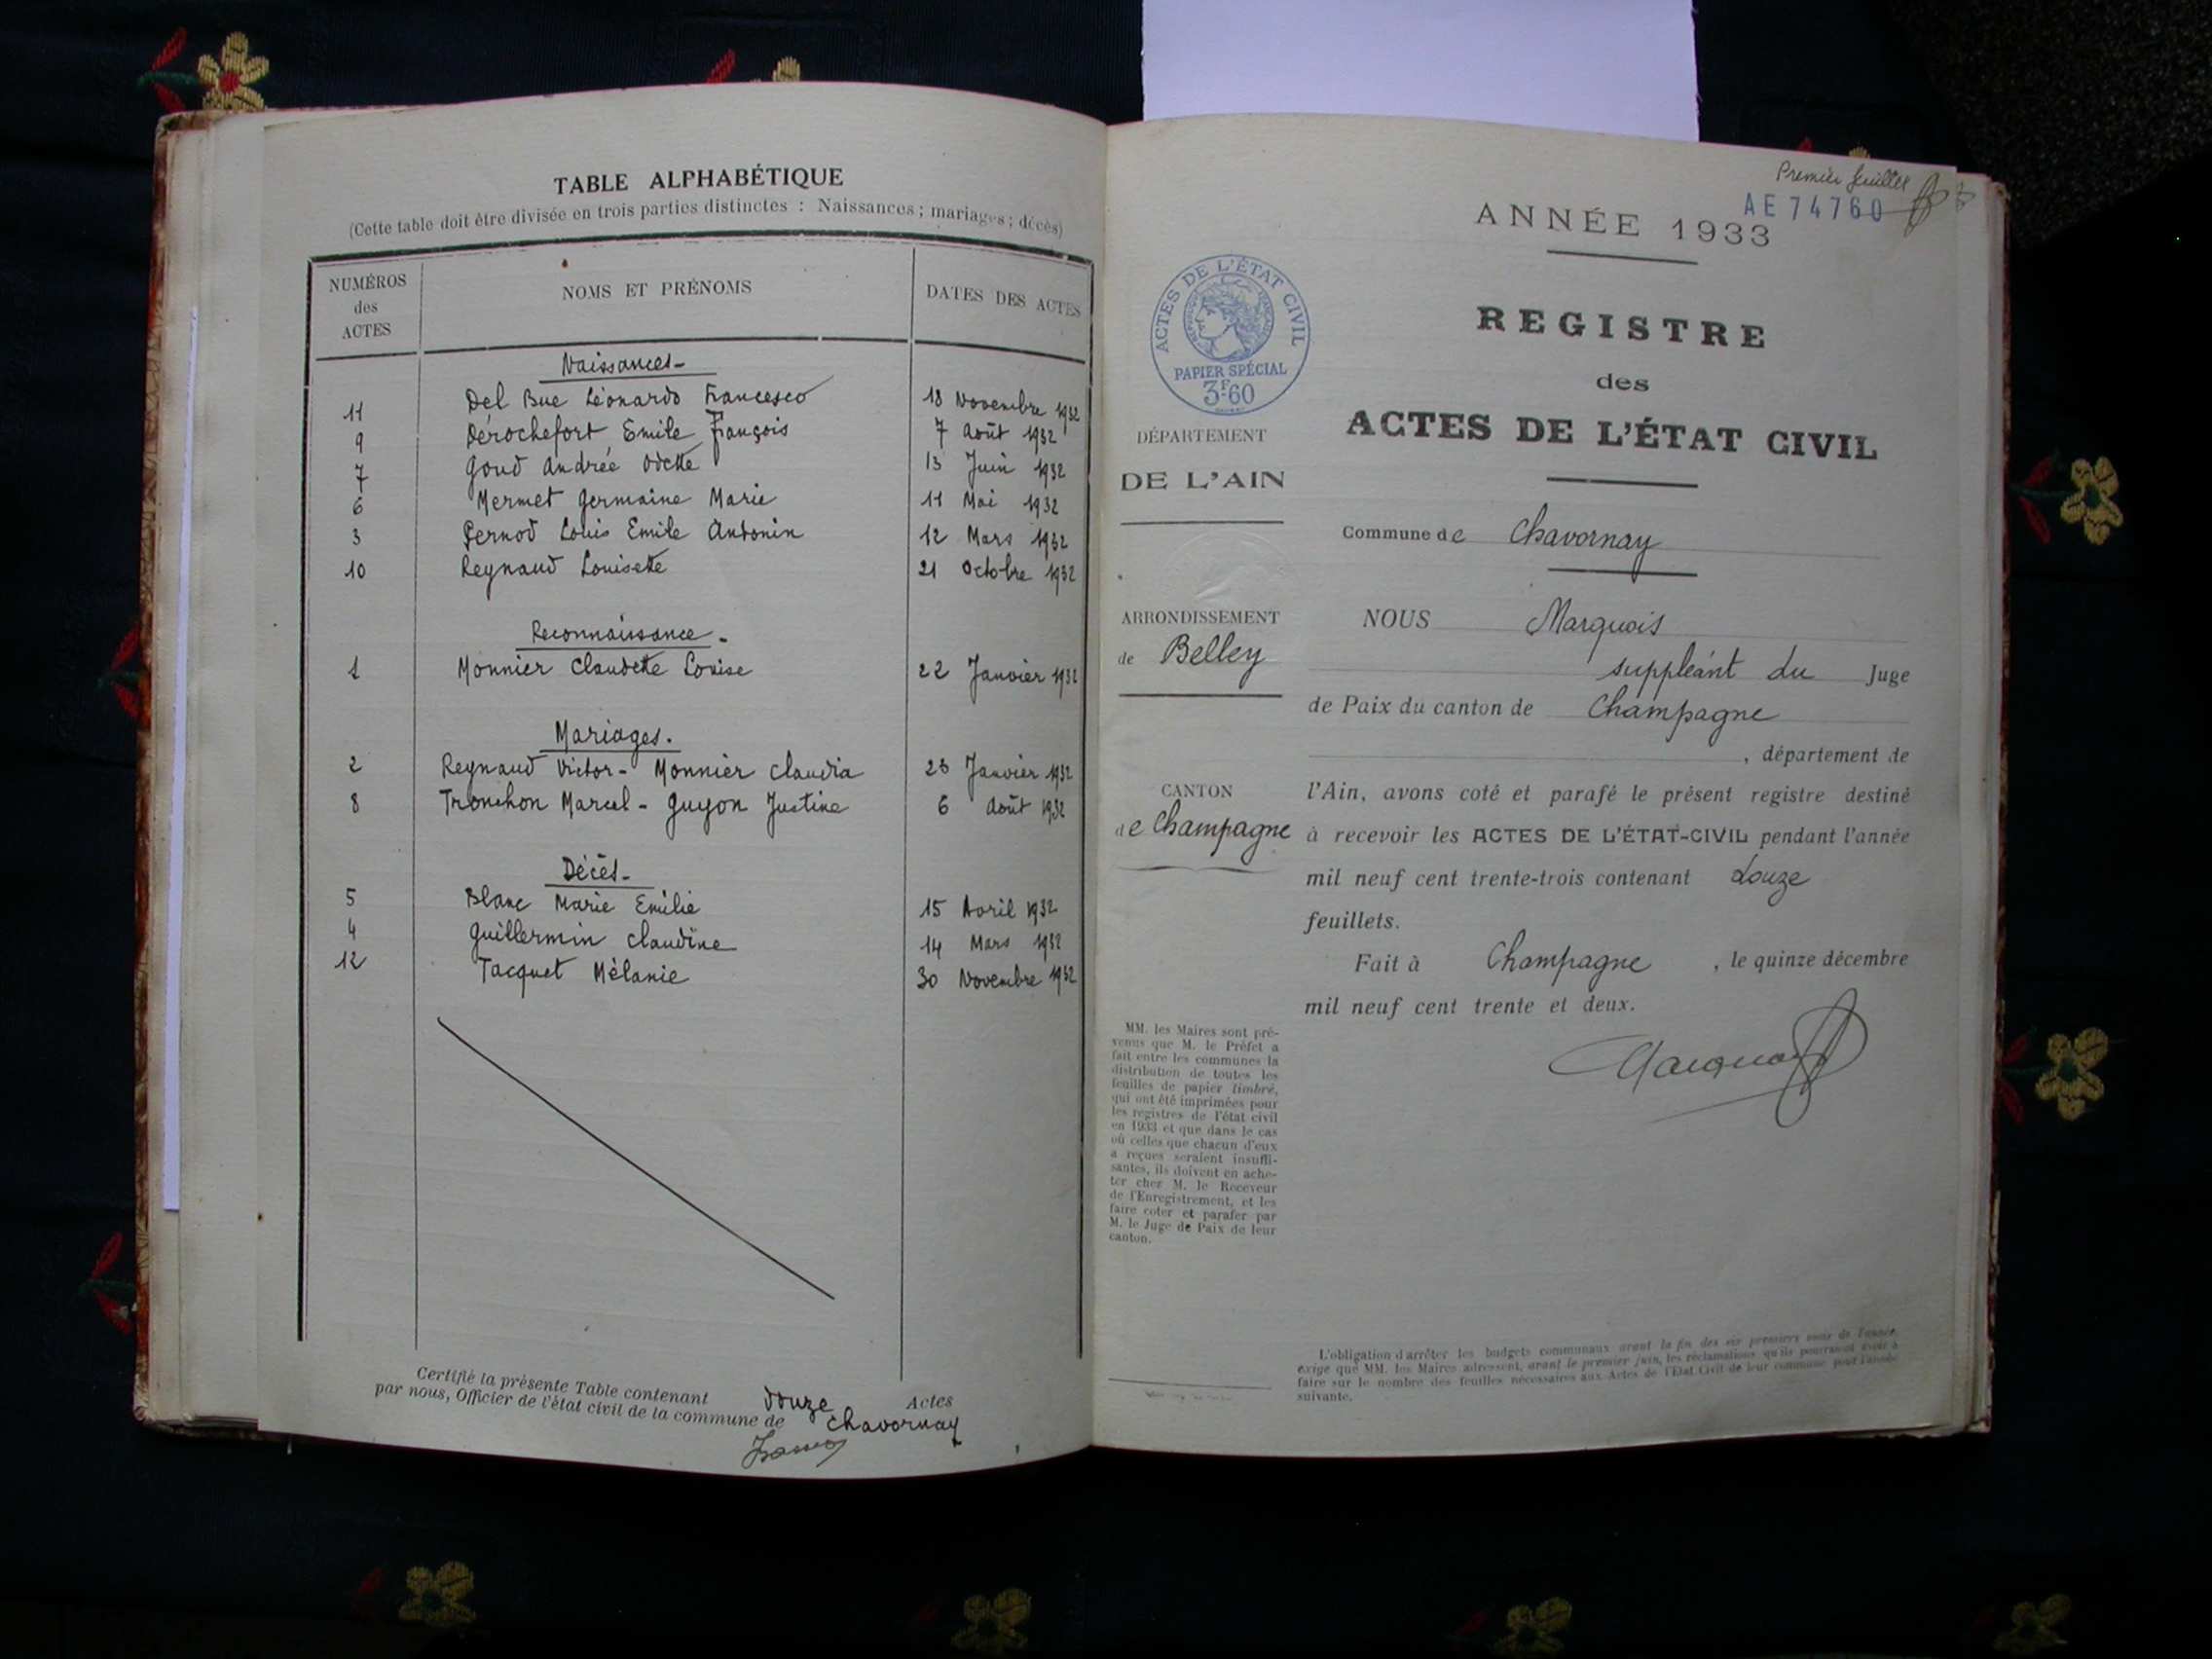 TABLE ALPHABÉTIQUE
(Cette table doit être divisée en trois parties distinctes : Naissances ; mariages ; décès)
NUMÉROS des ACTES NOMS ET PRÉNOMS DATES DES ACTES
Naissances-
11 Del Bue Léonardo Francesco 18 Novembre 1932
9 Dérochefort Emile François 7 Août 1932
7 Goud Andrée Odette 13 Juin 1932
6 Mermet Germaine Marie 11 Mai 1932
3 Pernod Louis Emile Antonin 12 Mars 1932
10 Reynaud Louisette 21 Octobre 1932
Reconnaissance-
1 Monnier Claudette Louise 22 Janvier 1932
Mariages.
2 Reynaud Victor- Monnier Claudia 23 Janvier 1932
8 Tronchon Marcel - Guyon Justine 6 Août 1932
Décès-
5 Blanc Marie Emilie 15 Avril 1932
4 Guillermin Claudine 14 Mars 1932
12 Tacquet Mélanie 30 Novembre 1932
Certifié la présente Table contenant douze Actes
par nous, Officier de l'état civil de la commune de Chavornay
Premier feuillet
AE 74760
ANNÉE 1933
ACTES DE L'ÉTAT CIVIL
RÉPUBLIQUE FRANÇAISE
PAPIER SPÉCIAL
3F.60
REGISTRE
des
ACTES DE L'ÉTAT CIVIL
DÉPARTEMENT
DE L'AIN
ARRONDISSEMENT
de Belley
CANTON
de Champagne
Commune de Chavornay
NOUS Marquois
suppléant du Juge
de Paix du canton de Champagne
, département de
l'Ain, avons coté et parafé le présent registre destiné
à recevoir les ACTES DE L'ÉTAT-CIVIL pendant l'année
mil neuf cent trente-trois contenant douze
feuillets.
Fait à Champagne , le quinze décembre
mil neuf cent trente et deux.
MM. les Maires sont pré-
venus que M. le Préfet a
fait entre les communes la
distribution de toutes les
feuilles de papier timbré,
qui ont été imprimées pour
les registres de l'état civil
en 1933 et que dans le cas
où celles que chacun d'eux
a reçues seraient insuffi-
santes, ils doivent en ache-
ter chez M. le Receveur
de l'Enregistrement, et les
faire coter et parafer par
M. le Juge de Paix de leur
canton.
L'obligation d'arrêter les budgets communaux avant la fin des six premiers mois de l'année,
exige que MM. les Maires adressent, avant le premier juin, les réclamations qu'ils pourraient avoir à
faire sur le nombre des feuilles nécessaires aux Actes de l'Etat Civil de leur commune pour l'année
suivante.